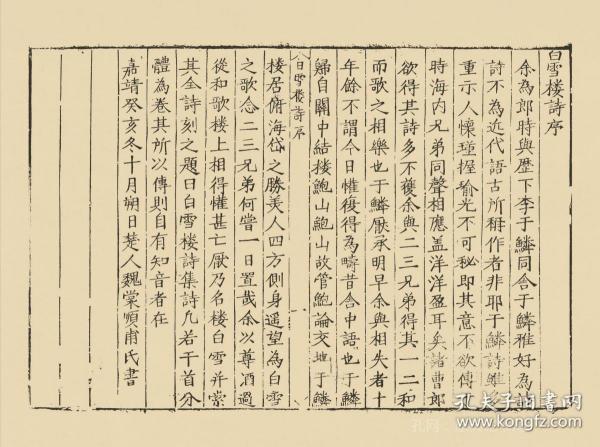 白雪樓詩序
余為郎時與歷下李于鱗同舍于鱗雅好為詩
詩不為近代語古所稱作者非耶于鱗詩雖
重示人懷瑾握瑜光不可秘即其意不欲傳
時海內兄弟同聲相應盖洋洋盈耳矣諸曹郎
欲得其詩多不獲余與二三兄弟得其一二和
而歌之相樂也于鱗厭承明早余與相失者十
年餘不謂今日懽復得為疇昔舍中語也于鱗
歸自關中結樓鮑山鮑山故管鮑論交地于鱗
白雪樓詩序
樓居俯海岱之勝美人四方側身遥望為白雪
之歌念二三兄弟何嘗一日置哉余以尊酒過
從和歌樓上相得懽甚亡厭乃名樓白雪并索
其全詩刻之題曰白雪樓詩集詩凢若干首分
體為卷其所以傳則自有知音者在
嘉靖癸亥冬十月朔日楚人魏裳順甫氏書
孔夫子旧書网
www.kongfz.com